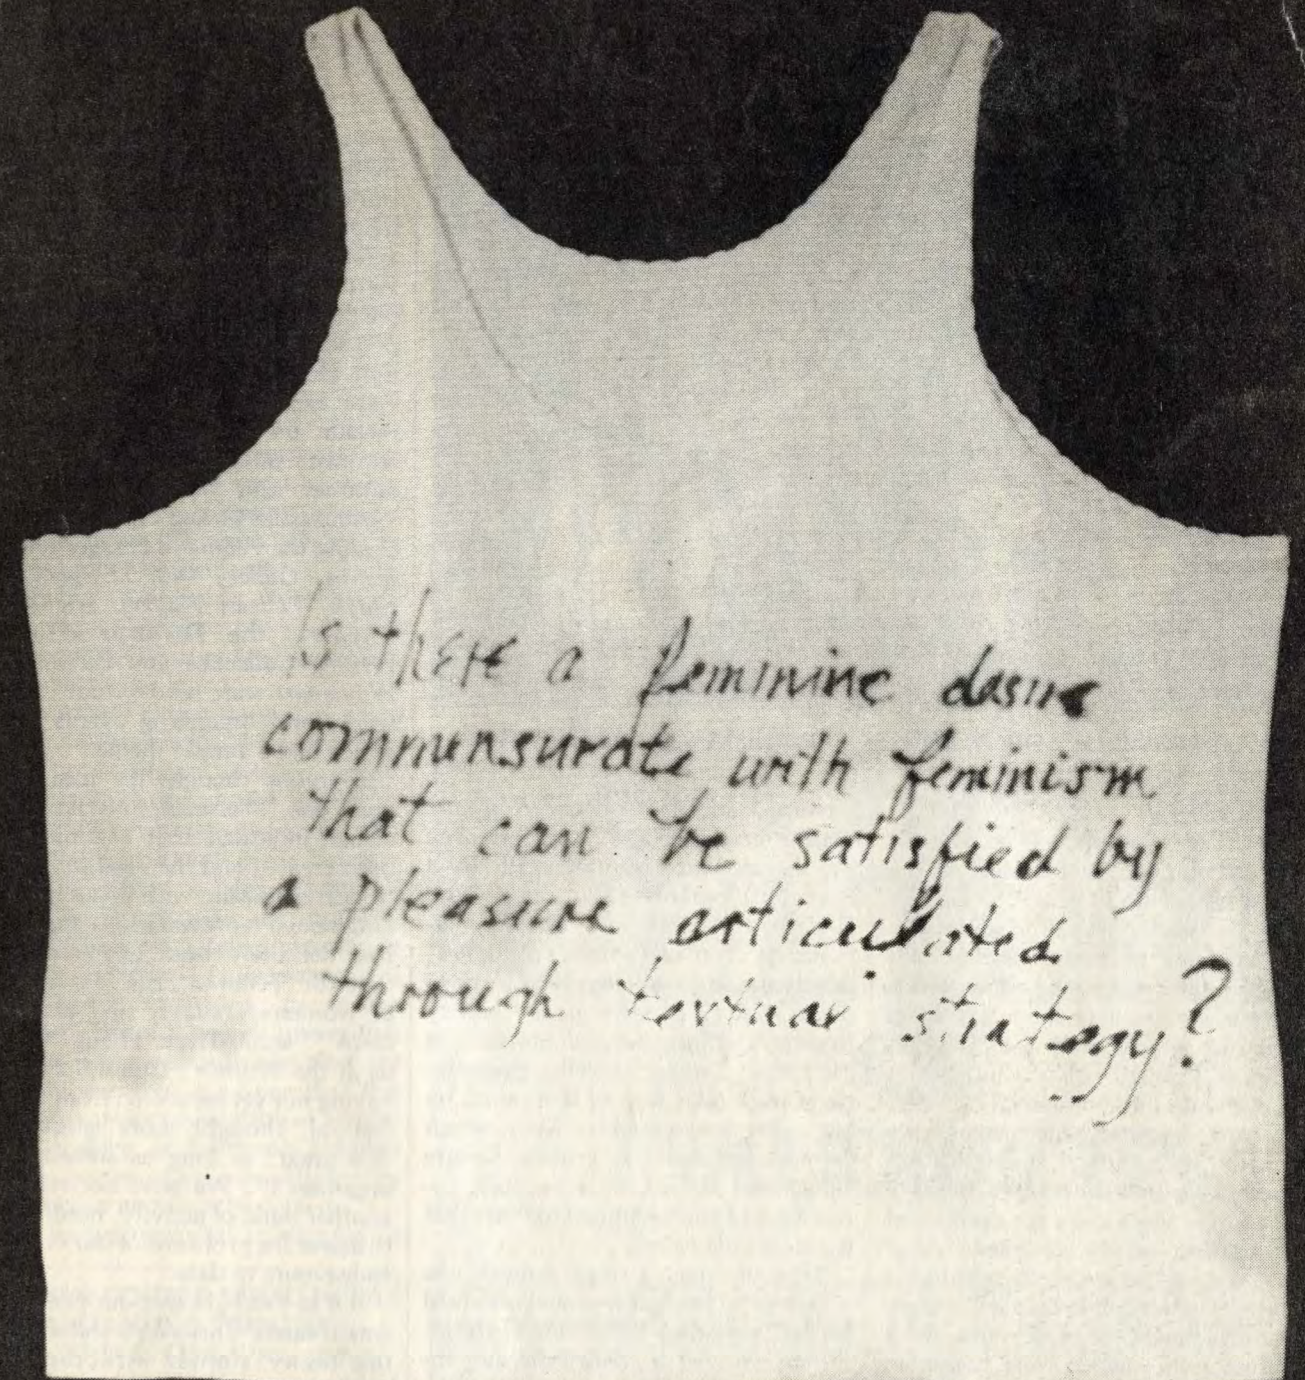 Is there a feminine desire
commensurate with feminism
that can be satisfied by
a pleasure articulated
through textual strategy?